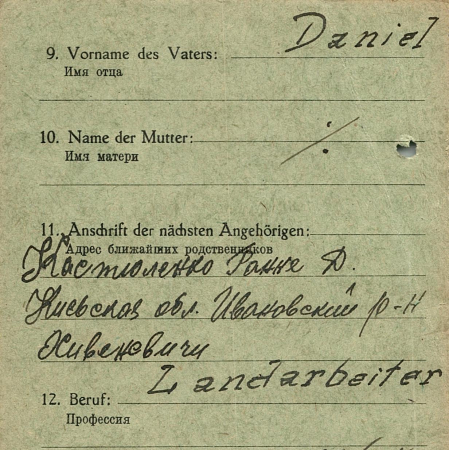 Daniel
9. Vorname des Vaters:
Имя отца
10. Name der Mutter: ·/·
Имя матери
11. Anschrift der nächsten Angehörigen:
Адрес ближайших родственников
Д.
Киевская обл. Ивановский р-н
Landarbeiter
12. Beruf:
Профессия